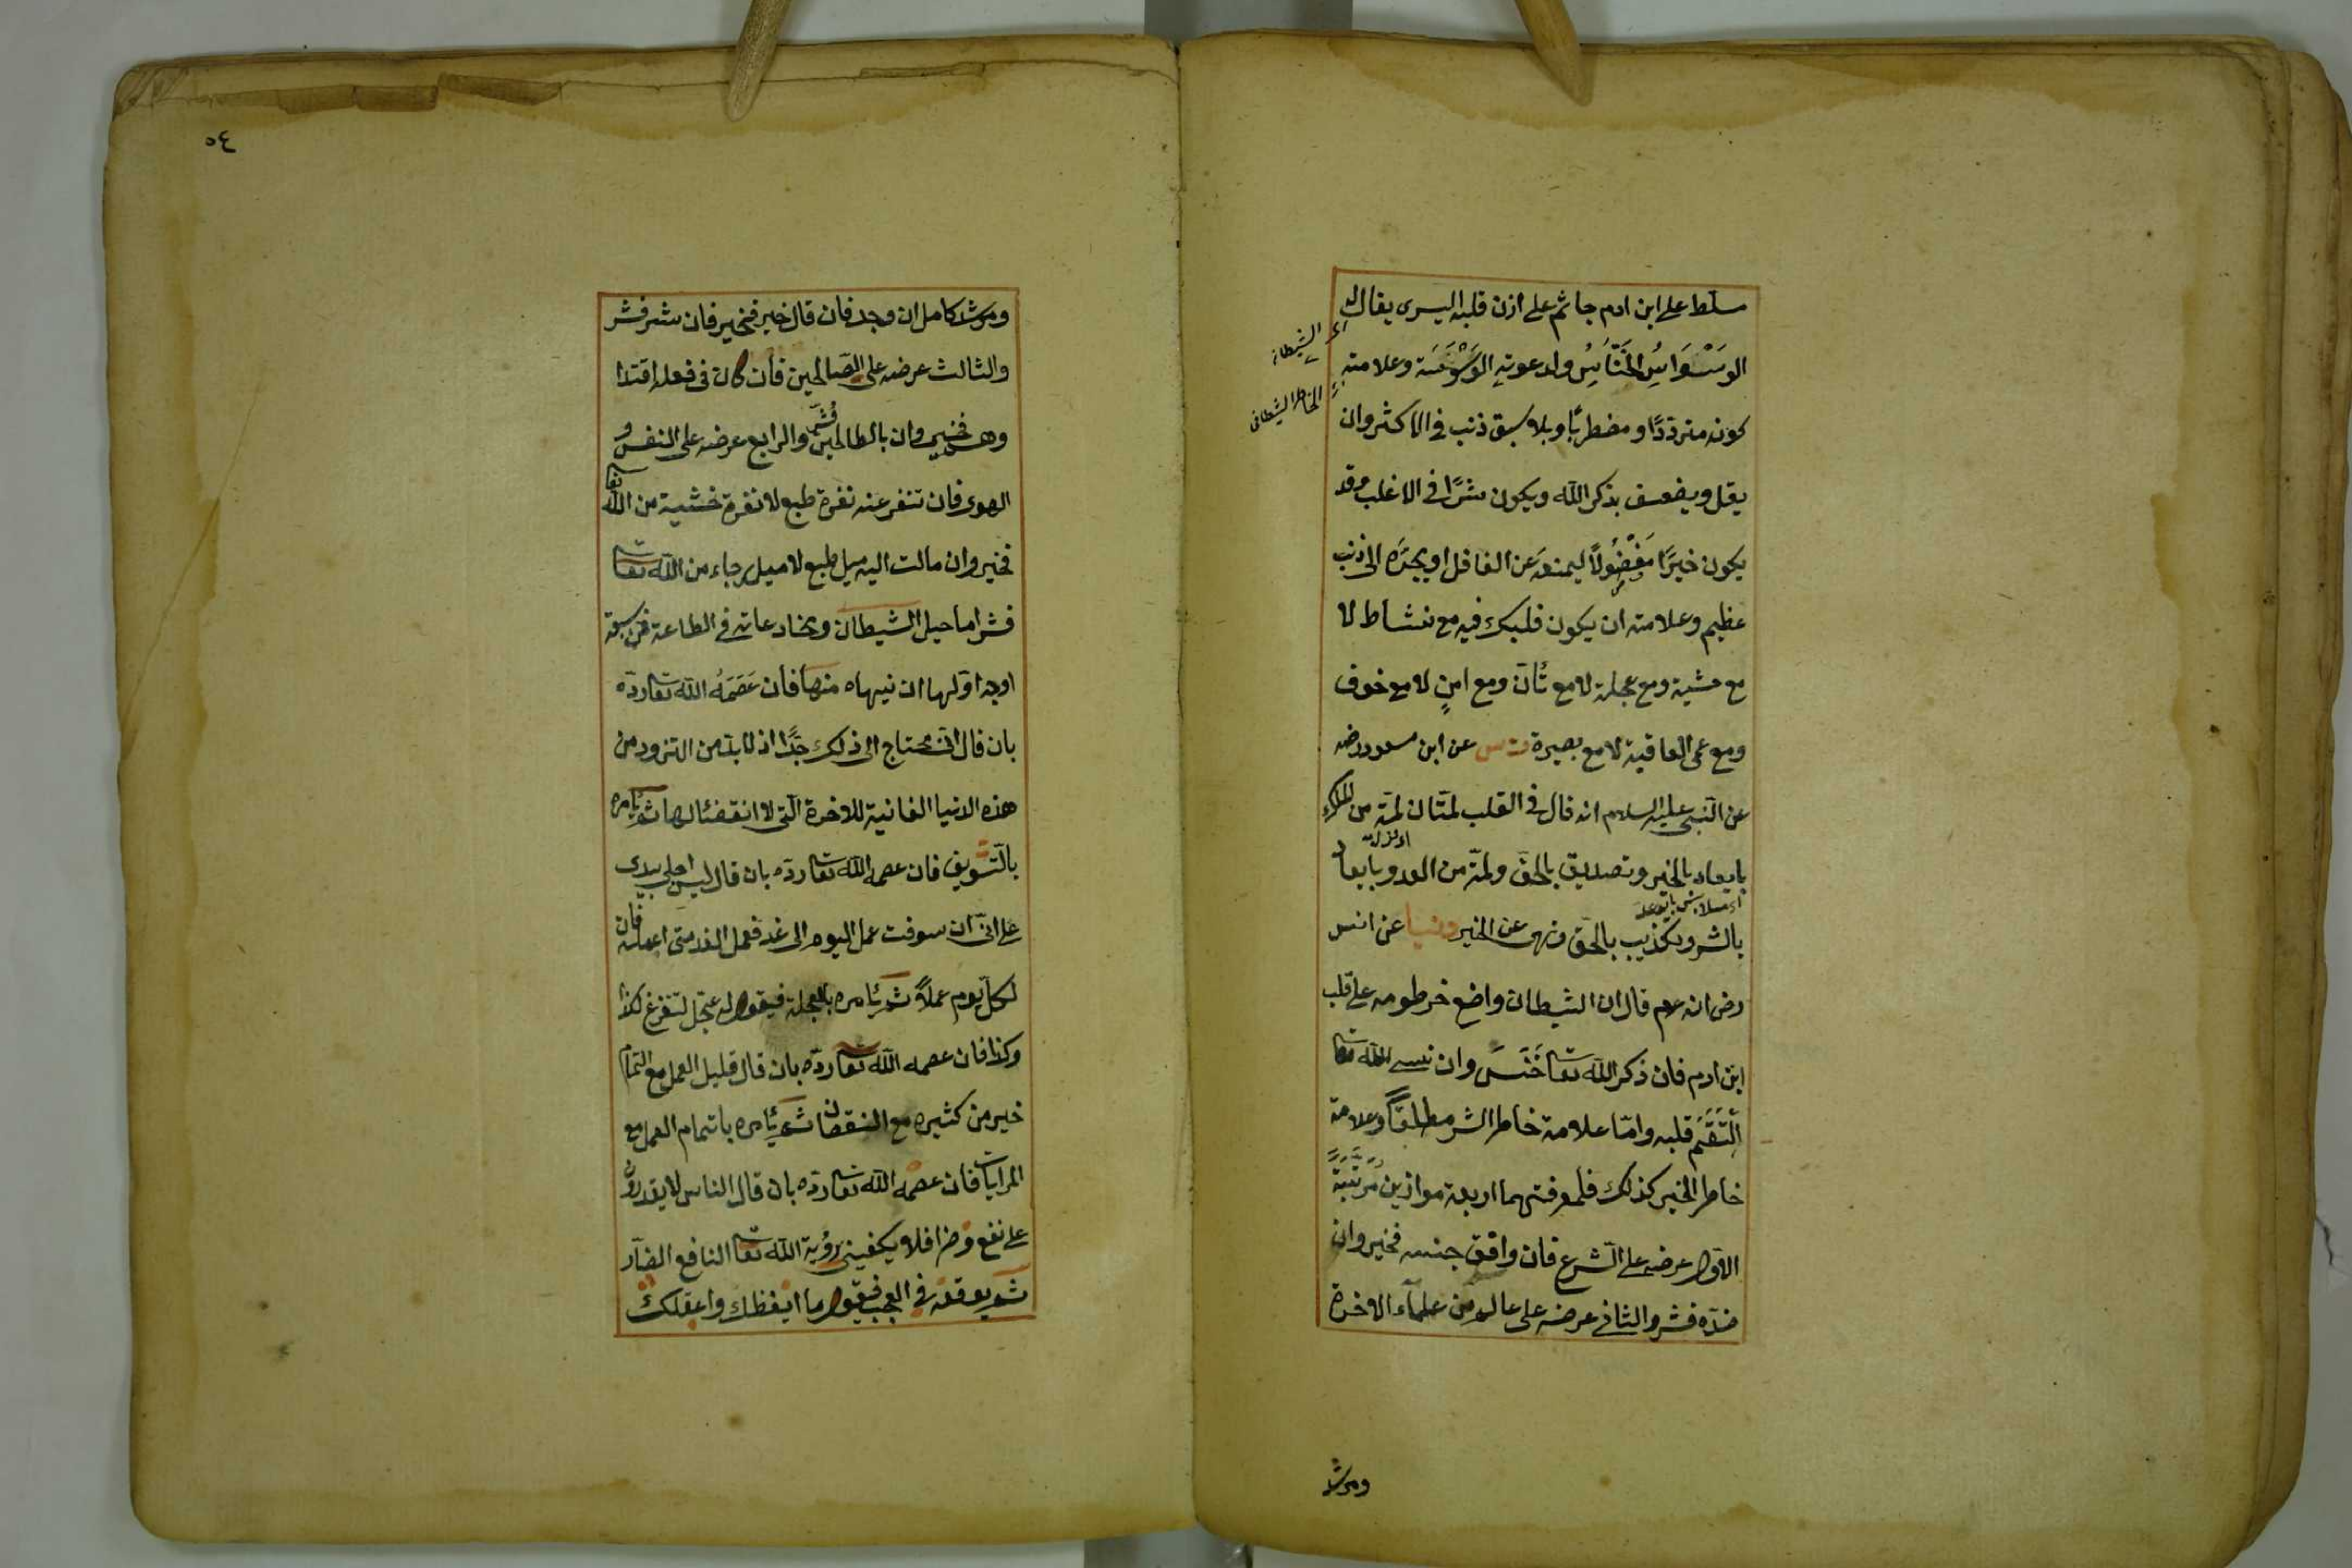 مسلط على ابن ادم جاثم على اذن قلبه اليسرى يقال له
الوَسْوَاسُ الخَنَّاسُ ولدعوته الوَسْوَسَة وعلامته
كونه مترددًا ومضطربًا وبلا سبق ذنب في الاكثر وان
يقل ويضعف بذكر الله ويكون شرًا في الاغلب وقد
يكون خيرًا مَفْضُولًا ليمنعه عن الفاضل او يجرّه الى ذنب
عظيم وعلامته ان يكون قلبك فيه مع نشاط لا
مع خشية ومع عجلة لا مع تأن ومع امنٍ لا مع خوف
ومع عمى العاقبة لا مع بصيرة ت س عن ابن مسعود رضه
عن النبى عليه السلام انه قال في القلب لمتان لمة من الملك
بايعاد بالخير وتصديق بالحق ولمة من العدو بايعاد
بالشر وتكذيب بالحق ونهى عن الخير دنيا عن انس
رض انه عم قال ان الشيطان واضع خرطومه على قلب
ابن ادم فان ذكر الله تعا خَنَسَ وان نسى الله تعا
اِلْتَقَمَ قلبه وامّا علامة خاطر الشر مطلقًا وعلامة
خاطر الخير كذلك فلمعرفتهما اربعة موازين مُرَتَّبَةً
الاول عرضه على الشرع فان وافق جنسه فخير وان
ضدّه فشر والثانى عرضه على عالم من علماء الاخرة
الخاطر الشيطانى
ومرشد
٥٤
ومرشد كامل ان وجد فان قال خير فخير فان شر فشر
والثالث عرضه على الصّالحين فان كان فى فعله اقتدا
وهم فخير وان بالطالحين فشر والرابع عرضه على النفس و
الهوى فان تنفر عنه نفرة طبع لا نفرة خشية من الله تعا
فخير وان مالت اليه ميل طبع لا ميل رجاء من الله تعا
فشر اما حيل الشيطان ومخادعاته في الطاعة فمن سبعة
اوجه اولها ان ينهاه منها فان عَصَمَهُ الله تعا ردّه
بان قال انى محتاج الى ذلك جدًّا اذ لا بد من التزود من
هذه الدنيا الفانية للاخرة الّتى لا انقضئا لها ثم يأمره
بالتسويف فان عصمه الله تعا ردّه بان قال ليس اجلى بيدى
على انّى ان سوفت عمل اليوم الى غد فعمل الغد متى اعمله فان
لكل يوم عملًا ثم يأمره بالعجلة فيقول له عجّل لتفرغ لكذا
وكذا فان عصمه الله تعا ردّه بان قال قليل العمل مع التمام
خير من كثيره مع النقصان ثم يأمره باتمام العمل مع
المرايات فان عصمه الله تعا ردّه بان قال الناس لا يقدرون
على نفع وضر افلا يكفينى رؤية الله تعا النافع الضآر
ثم يوقعه في العجب فيقول ما ايقظك واعقلك